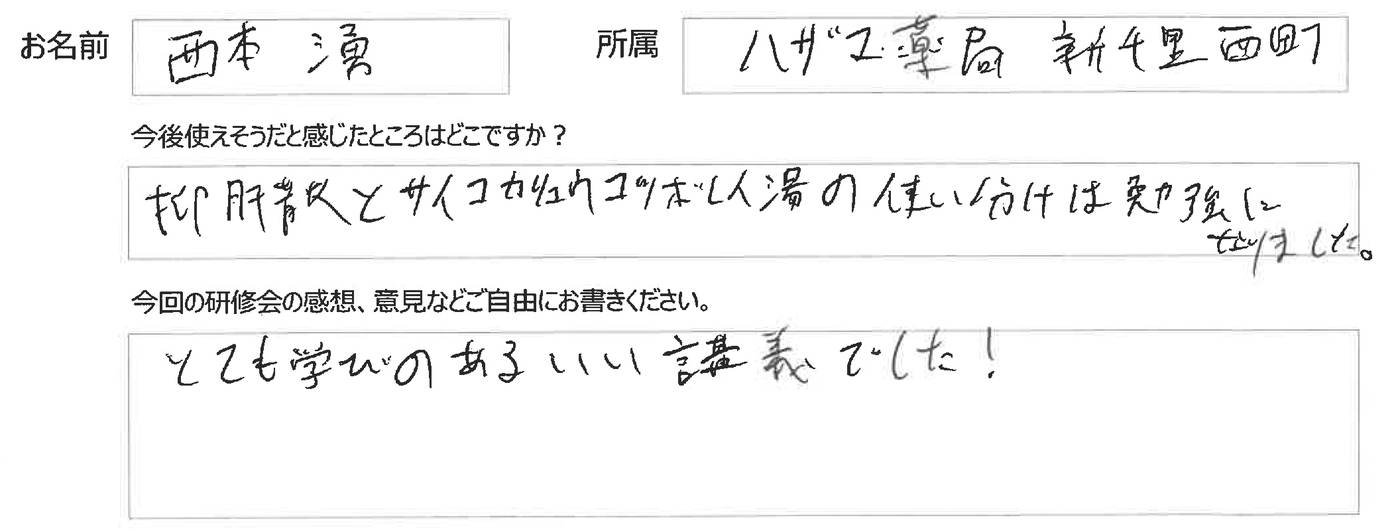 お名前 西本 湧 所属 ハザマ薬局 新千里西町
今後使えそうだと感じたところはどこですか？
抑肝散とサイコカリュウコツボレイ湯の使い分けは勉強に
なりました。
今回の研修会の感想、意見などご自由にお書きください。
とても学びのあるいい講義でした！